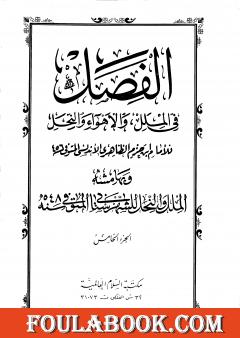 الفصل
في الملل والأهواء والنحل
للإمام ابن حزم الظاهري الأندلسي المتوفى
وبهامشه
الملل والنحل للشهرستاني المتوفى سنة
الجزء الخامس
مكتبة السلام العالمية
FOULABOOK.COM